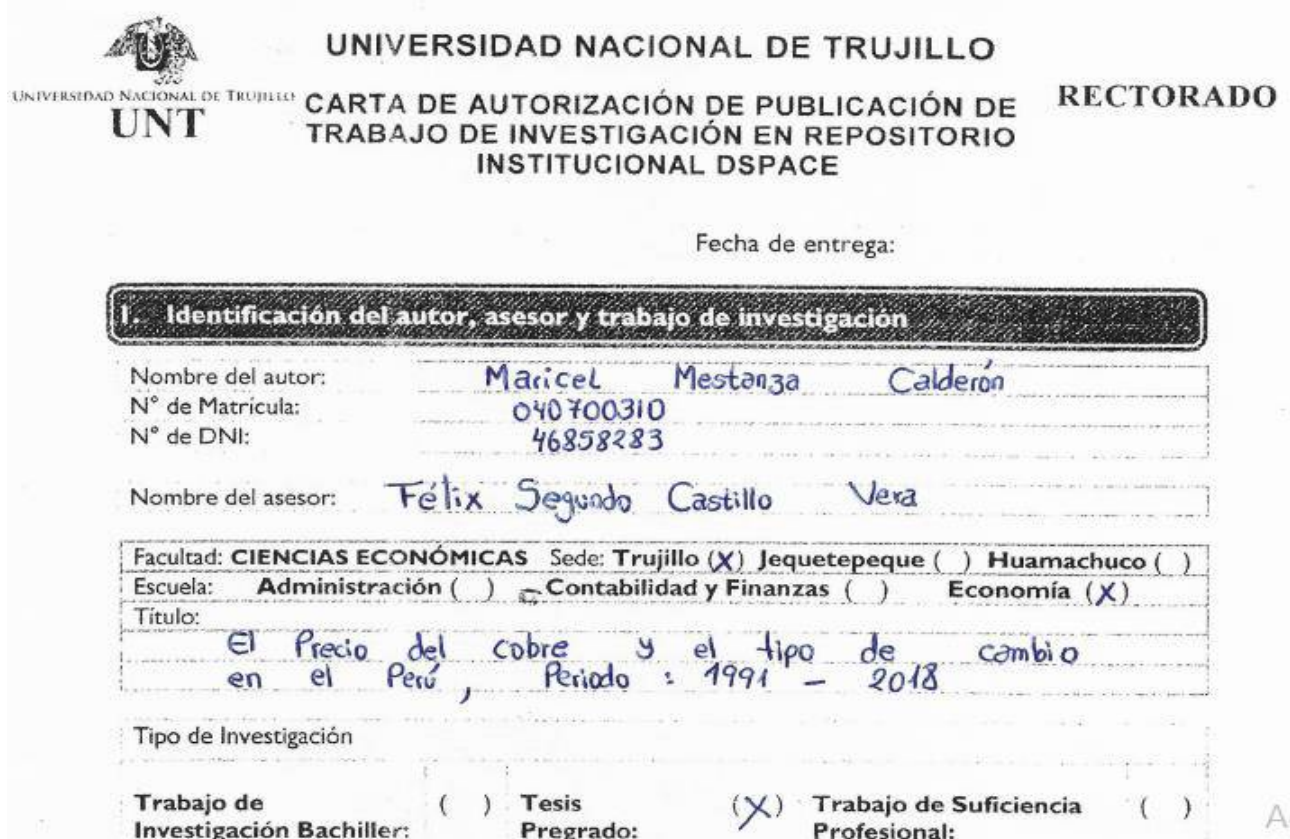 UNIVERSIDAD NACIONAL DE TRUJILLO
UNIVERSIDAD NACIONAL DE TRUJILLO
UNT
CARTA DE AUTORIZACIÓN DE PUBLICACIÓN DE
TRABAJO DE INVESTIGACIÓN EN REPOSITORIO
INSTITUCIONAL DSPACE
RECTORADO
Fecha de entrega:
1. Identificación del autor, asesor y trabajo de investigación
Nombre del autor: Maricel Mestanza Calderón
N° de Matrícula: 040700310
N° de DNI: 46858283
Nombre del asesor: Félix Segundo Castillo Vera
Facultad: CIENCIAS ECONÓMICAS Sede: Trujillo (X) Jequetepeque ( ) Huamachuco ( )
Escuela: Administración ( ) Contabilidad y Finanzas ( ) Economía (X)
Título:
El Precio del cobre y el tipo de cambio
en el Perú, Periodo : 1991 - 2018
Tipo de Investigación
Trabajo de ( ) Tesis (X) Trabajo de Suficiencia ( )
Investigación Bachiller: Pregrado: Profesional:
A